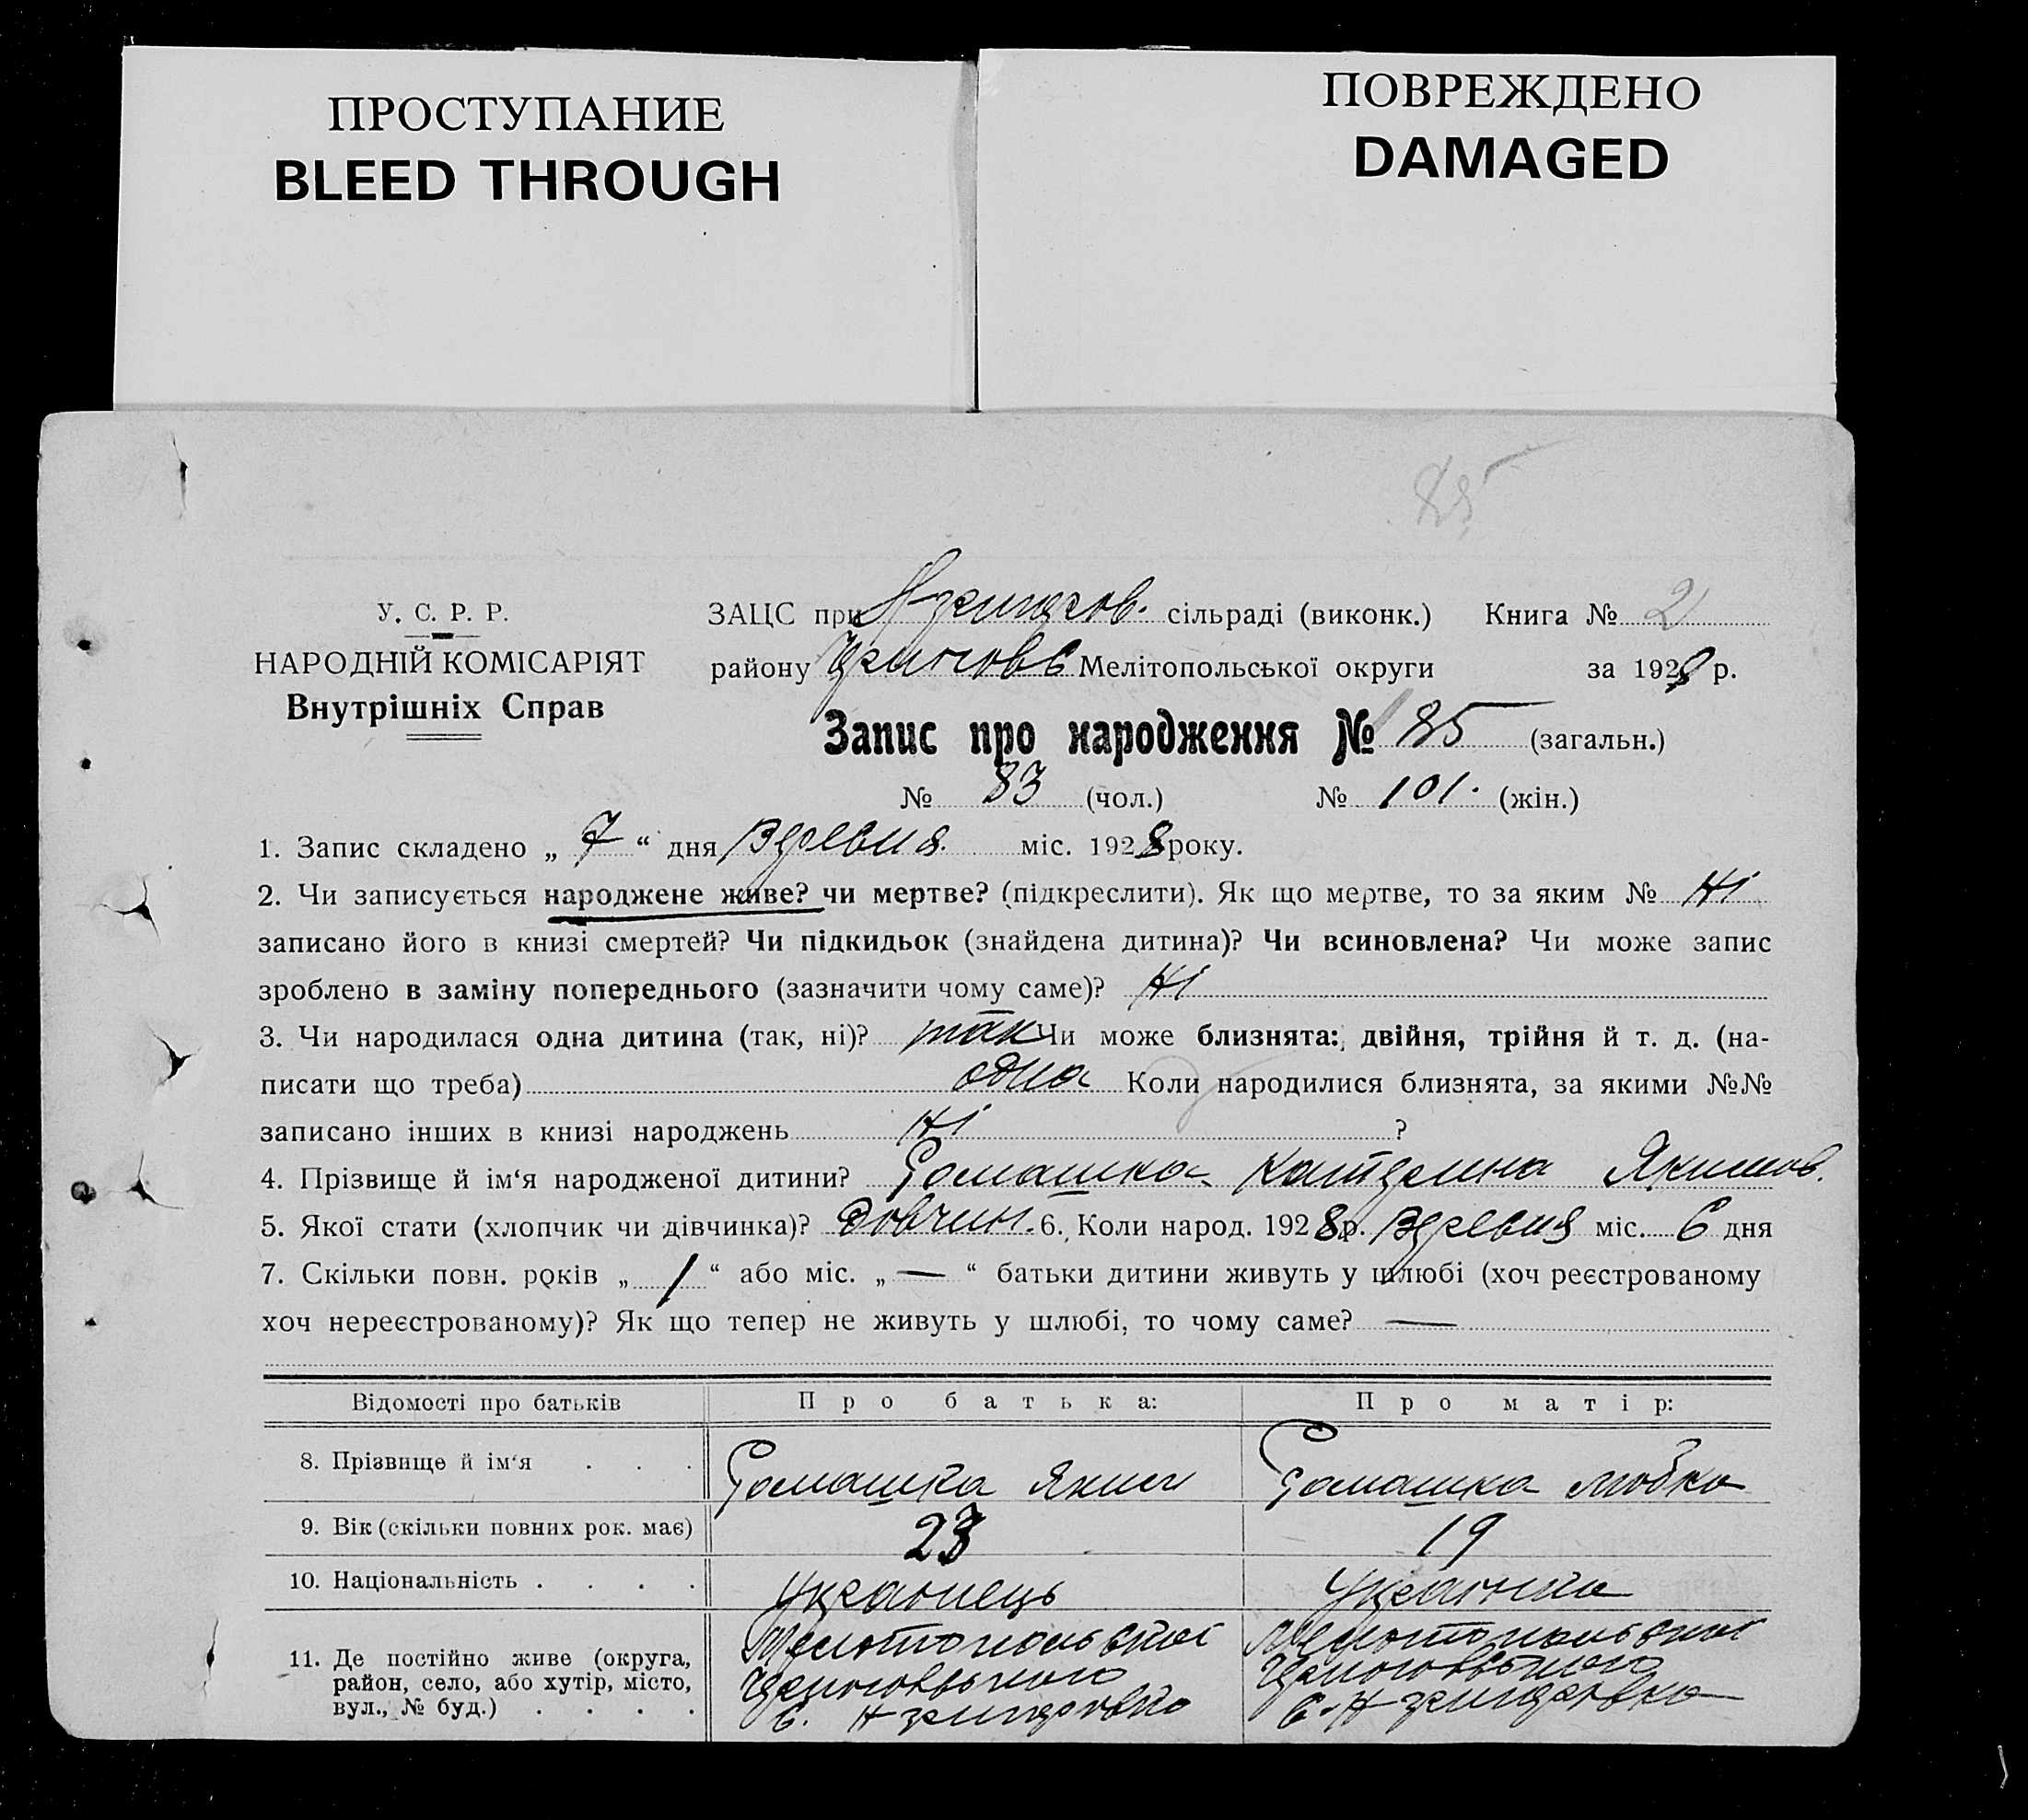 ПРОСТУПАНИЕ
BLEED THROUGH
ПОВРЕЖДЕНО
DAMAGED
85
У. С. Р. Р.
НАРОДНІЙ КОМІСАРІЯТ
Внутрішніх Справ
ЗАЦС при сільраді (виконк.) Книга № 2
району Мелітопольської округи за 1928 р.
Запис про народження № 185 (загальн.)
№ 83 (чол.) № 101. (жін.)
1. Запис складено „ 7 “ дня Вересня міс. 1928 року.
2. Чи записується народжене живе? чи мертве? (підкреслити). Як що мертве, то за яким № Ні
записано його в книзі смертей? Чи підкидьок (знайдена дитина)? Чи всиновлена? Чи може запис
зроблено в заміну попереднього (зазначити чому саме)? Ні
3. Чи народилася одна дитина (так, ні)? так Чи може близнята: двійня, трійня й т. д. (на-
писати що треба) одна Коли народилися близнята, за якими №№
записано інших в книзі народжень Ні ?
4. Прізвище й ім‘я народженої дитини? Ромашка Катерина Якимов.
5. Якої стати (хлопчик чи дівчинка)? Дівчин. 6. Коли народ. 1928 р. Вересня міс. 6 дня
7. Скільки повн. років „ 1 “ або міс. „ — “ батьки дитини живуть у шлюбі (хоч реєстрованому
хоч нереєстрованому)? Як що тепер не живуть у шлюбі, то чому саме? —
Відомості про батьків Про батька: Про матір:
8. Прізвище й ім‘я . . . Ромашка Яким Ромашка
9. Вік (скільки повних рок. має) 23 19
10. Національність . . . . Украінець Украінка
11. Де постійно живе (округа, Мелітопольскоі Мелітопольскоі
район, село, або хутір, місто,
вул., № буд.) . . . . с. с.